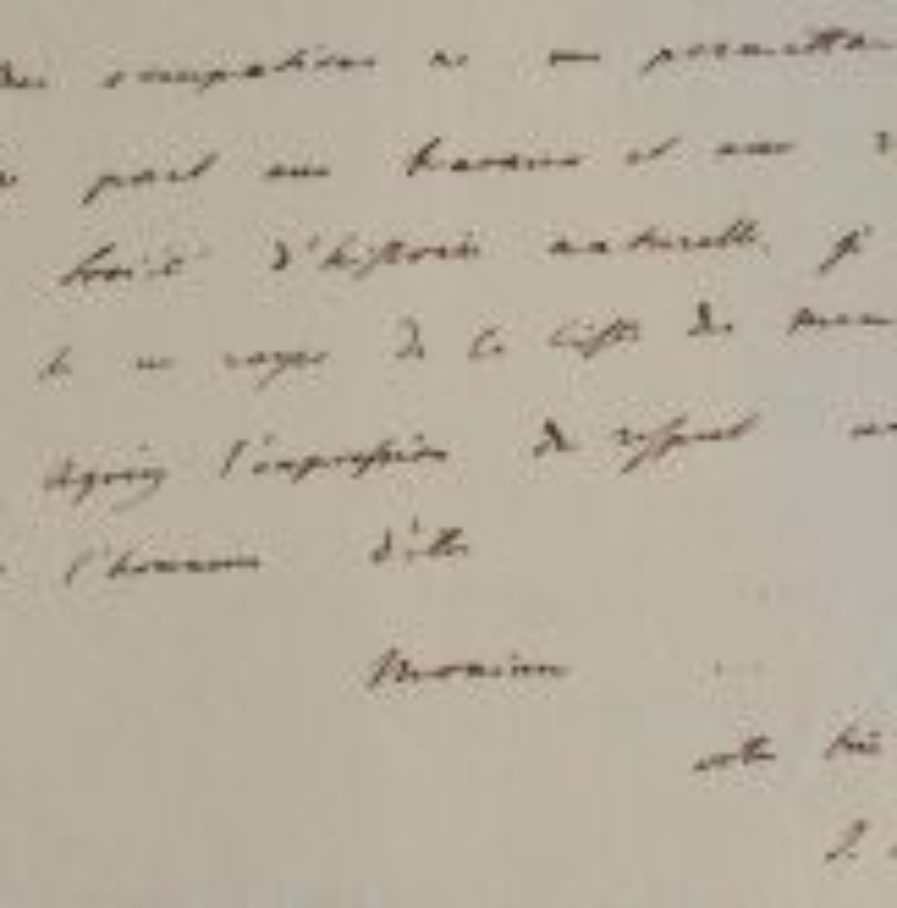 occupations ne me permettan
part aux travaux et aux
société d'histoire naturelle, j
de me rayer de la liste des mem
agréer l'expression du respect
l'honneur d'être
Monsieur
votre très